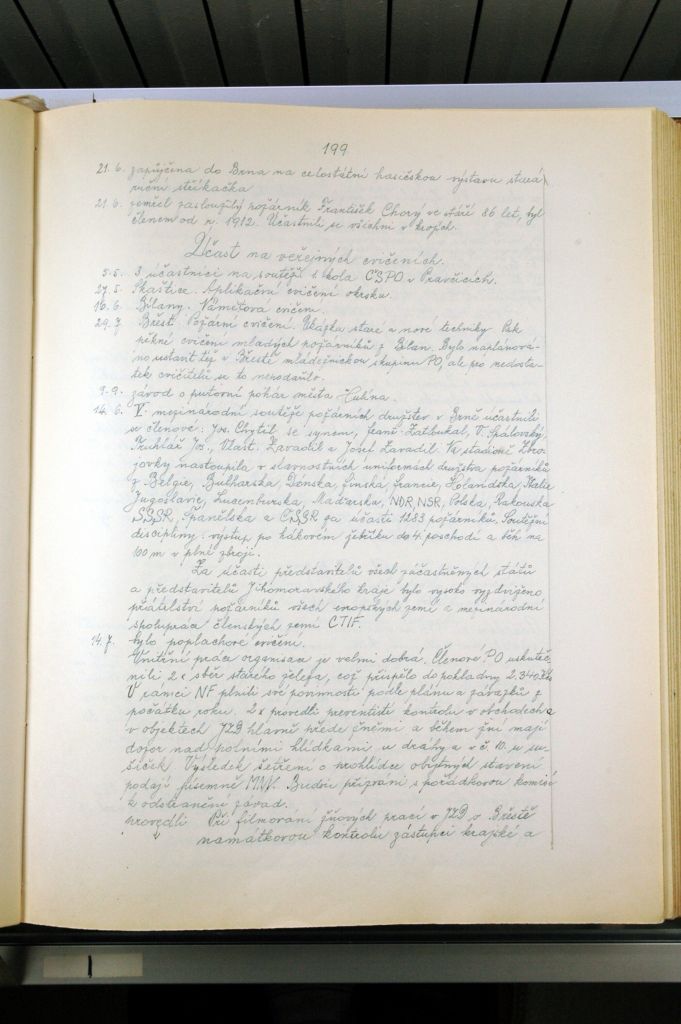 199
21. 6. zapůjčena do Brna na celostátní hasičskou výstavu stará
ruční stříkačka
21. 6. zemřel zasloužilý požárník František Chorý ve stáří 86 let, byl
členem od r. 1912. Účastnili se všichni v krojích.
Účast na veřejných cvičeních.
5. 5. 3 účastníci na soutěži škola ČSPO v Pravčicích.
27. 5. Skaštice. Aplikační cvičení okrsku.
16. 6. Bílany. Námětová cvičení.
29. 7. Břest. Požární cvičení. Ukázka staré a nové techniky. Pak
pěkné cvičení mladých požárníků z Bílan. Bylo naplánová-
no ustavit též v Břestě mládežnickou skupinu PO, ale pro nedosta-
tek cvičitelů se to nepodařilo.
9. 9. závod o putovní pohár města Hulína.
14. 6. V. mezinárodní soutěže požárních družstev v Brně účastnili
se členové: Jos. Chytil se synem, Franc. Zatloukal, V. Spálovský,
Truhlář Jos., Vlast. Zavadil a Josef Zavadil. Na stadionu Zbro-
jovky nastoupila v slavnostních uniformách družstva požárníků
z Belgie, Bulharska, Dánska, Finska, Francie, Holandska, Italie
Jugoslavie, Lucemburska, Maďarska, NDR, NSR, Polska, Rakouska
SSSR, Španělska a ČSSR za účasti 1283 požárníků. Soutěžní
disciplíny: výstup po hákovém žebříku do 4. poschodí a běh na
100 m v plné zbroji.
Za účasti představitelů všech zúčastněných států
a představitelů Jihomoravského kraje bylo vysoko vyzdviženo
přátelství požárníků všech evropských zemí a mezinárodní
spolupráce členských zemí CTIF.
14. 7. bylo poplachové cvičení.
Vnitřní práce organisace je velmi dobrá. Členové PO uskuteč-
nili 2 x sběr starého železa, což přispělo do pokladny 2.340 Kčs
V rámci NF plnili své povinnosti podle plánu a závazků z
počátku roku. 2 x provedli preventisti kontrolu v obchodech a
v objektech JZD hlavně přede žněmi a během žní mají
dozor nad polními hlídkami, u dráhy a v č. 10. u su-
šiček. Výsledek šetření o prohlídce obytných stavení
podají písemně MNV. Budou přizváni s pořádkovou komisí
k odstranění závad.
provedli Při filmování žňových prací v JZD v Břestě
namátkovou kontrolu zástupci krajské a